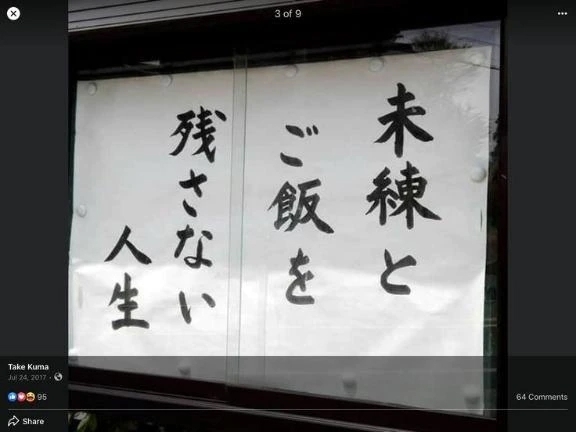 3 of 9
未練と
ご飯を
残さない
人生
Take Kuma
Jul 24, 2017
95
64 Comments
Share